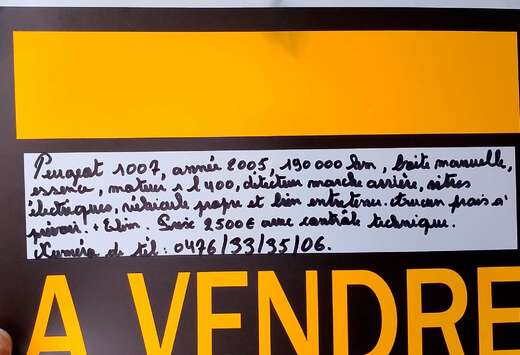 Peugeot 1007, année 2005, 190 000 km, boite manuelle,
essence, moteur 1 l 400, détecteur marche arrière, vitres
électriques, véhicule propre et bien entretenu. Aucun frais à
prévoir. + Clim. Prix 2500€ avec contrôle technique.
Numéro de tél : 0476/33/35/06.
A VENDRE